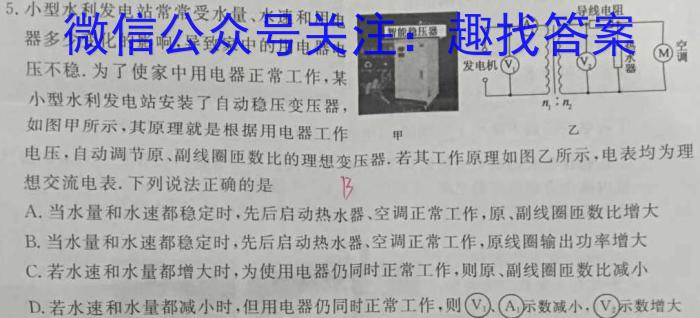 5. 小型水利发电站常常受水量、水速和用电
器多
微信公众号关注：趣找答案
压不稳. 为了使家中用电器正常工作, 某
小型水利发电站安装了自动稳压变压器,
如图甲所示, 其原理就是根据用电器工作
电压, 自动调节原、副线圈匝数比的理想变压器. 若其工作原理如图乙所示, 电表均为理
想交流电表. 下列说法正确的是 B
A. 当水量和水速都稳定时, 先后启动热水器、空调正常工作, 原、副线圈匝数比增大
B. 当水量和水速都稳定时, 先后启动热水器、空调正常工作, 原线圈输出功率增大
C. 若水速和水量都增大时, 为使用电器仍同时正常工作, 则原、副线圈匝数比减小
D. 若水速和水量都减小时, 但用电器仍同时正常工作, 则V₁、A₁示数减小, V₂示数增大
智能稳压器
甲
导线电阻
发电机
V₁
V₂
水器
M
空调
n₁ : n₂
乙